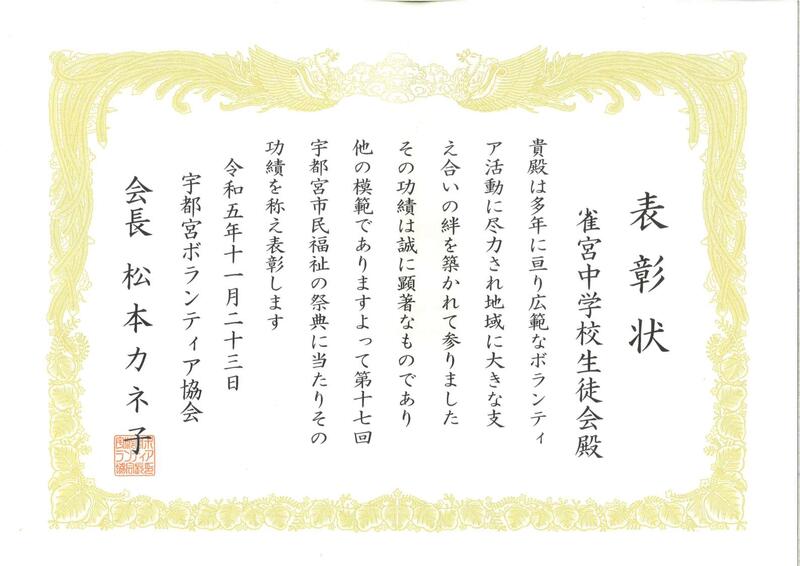 表彰状
雀宮中学校生徒会殿
貴殿は多年に亘り広範なボランティ
ア活動に尽力され地域に大きな支
え合いの絆を築かれて参りました
その功績は誠に顕著なものであり
他の模範でありますよって第十七回
宇都宮市民福祉の祭典に当たりその
功績を称え表彰します
令和五年十一月二十三日
宇都宮ボランティア協会
会長 松本カネ子